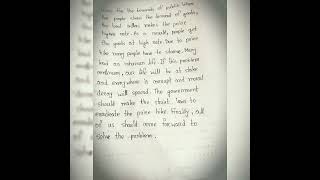 the demands of public. When
the people show the demand of goods,
the bad sellers makes the price
higher rate. As a result, people get
the goods at high rate. Due to price
hike many people have to starve. Many
lead an inhuman life. If this problem
continues, our life will be at stake
and everywhere is corrupt and moral
decay will spread. The government
should make the strict laws to
eradicate the price hike. Finally, all
of us should come forward to
solve the problem.